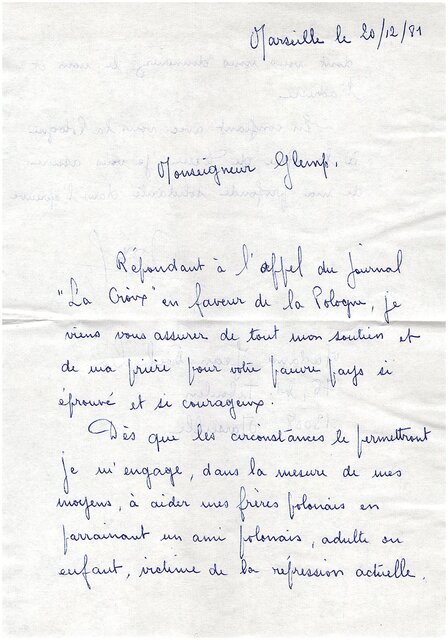 Marseille le 20/12/81
Monseigneur Glemp.
Répondant à l'appel du journal
"La Croix" en faveur de la Pologne, je
viens vous assurer de tout mon soutien et
de ma prière pour votre pauvre pays si
éprouvé et si courageux.
Dès que les circonstances le permettront
je m'engage, dans la mesure de mes
moyens, à aider mes frères polonais en
parrainant un ami polonais, adulte ou
enfant, victime de la répression actuelle.